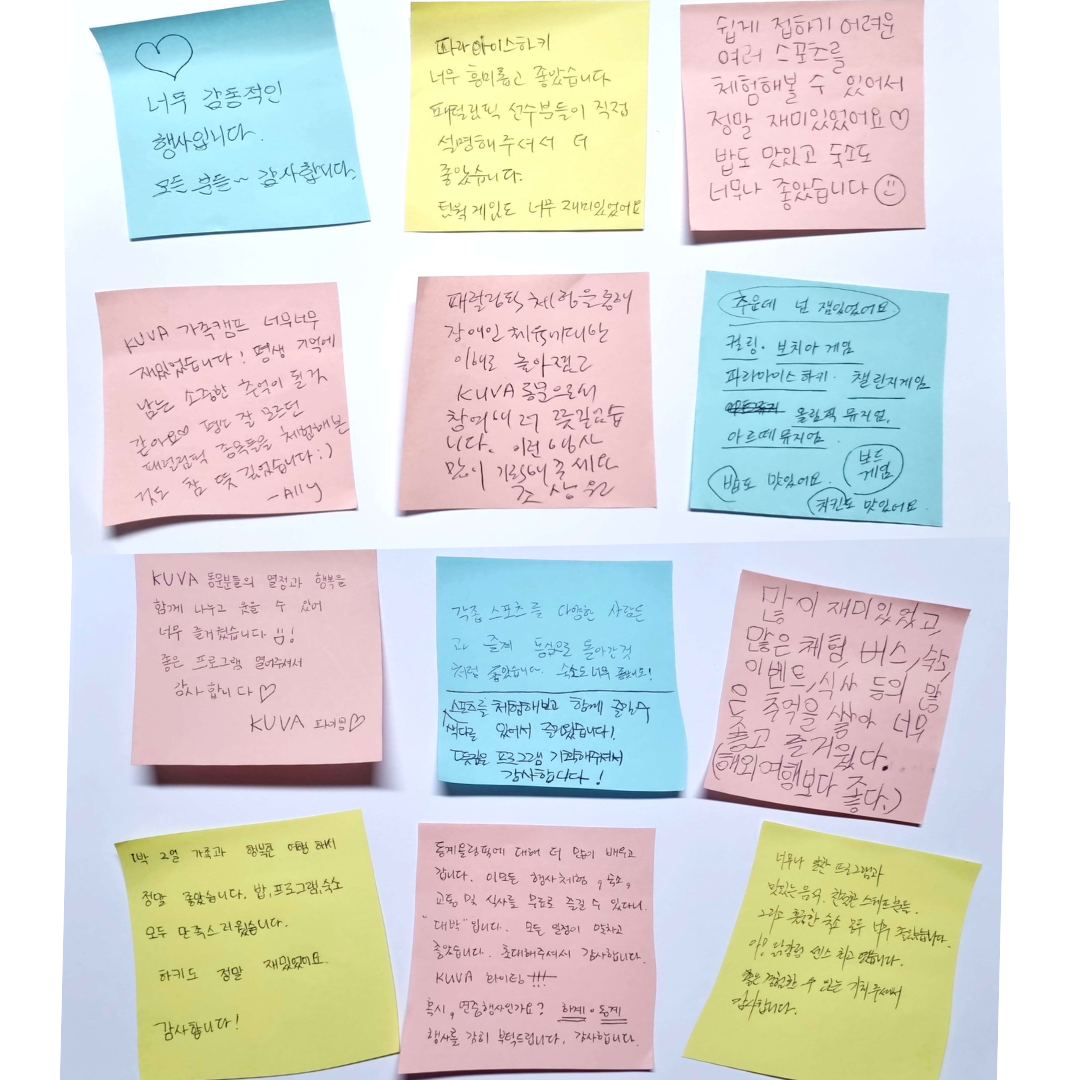 너무 감동적인
행사입니다.
모든 분들~ 감사합니다.
파라아이스하키
너무 흥미롭고 좋았습니다
패럴림픽 선수분들이 직접
설명해주셔서 더
좋았습니다.
턴훅게임도 너무 재미있었어요
쉽게 접하기 어려운
여러 스포츠를
체험해볼 수 있어서
정말 재미있었어요♡
밥도 맛있고 숙소도
너무나 좋았습니다
KUVA 가족캠프 너무너무
재밌었습니다! 평생 기억에
남는 소중한 추억이 될것
같아요♡ 평소 잘 모르던
패럴림픽 종목들을 체험해본
것도 참 뜻 깊었습니다:)
-Ally
패럴림픽 체험을통해
장애인 체육에대한
이해도 높아졌고
KUVA 동문으로서
참여해 더 뜻깊었습
니다. 이런 행사
많이 기획해 주세요
조상원
추운데 넌 잼있었어요
컬링. 보치아 게임
파라아이스하키. 챌린지게임
올림픽 뮤지엄.
아르떼뮤지엄.
보드
게임
밥도 맛있어요.
치킨도 맛있어요.
KUVA 동문분들의 열정과 행복을
함께 나누고 웃을 수 있어
너무 즐거웠습니다!
좋은 프로그램 열어주셔서
감사합니다♡
KUVA 화이팅♡
각종 스포츠를 다양한 사람들
과 즐겨 동심으로 돌아간것
처럼 좋았습니다. 숙소도 너무 좋아요!
스포츠를 체험해보고 함께 즐길수
색다른 있어서 즐거웠습니다!
뜻깊은 프로그램 기획해주셔서
감사합니다!
많이 재미있었고,
많은 체험, 버스, 숙소,
이벤트, 식사 등의 많
은 추억을 쌓아 너무
좋고 즐거웠다.
(해외여행보다 좋다.)
1박 2일 가족과 행복한 여행 하시
정말 좋았습니다. 밥, 프로그램, 숙소
모두 만족스러웠습니다.
하키도 정말 재밌었어요.
감사합니다!
동계올림픽에 대해 더 많이 배우고
갑니다. 이모든 행사체험, 숙소,
교통 및 식사를 무료로 즐길 수 있다니.
"대박"입니다. 모든 일정이 알차고
좋았습니다. 초대해주셔서 감사합니다.
KUVA 화이팅!!!
혹시, 연중행사인가요? 하계·동계
행사를 감히 부탁드립니다. 감사합니다.
너무나 알찬 프로그램과
맛있는 음식, 친절한 스태프분들,
그리고 훌륭한 숙소 모두 너무 좋았습니다.
아! 닭강정 센스 최고 였습니다.
좋은 경험할 수 있는 기회 주셔서
감사합니다.